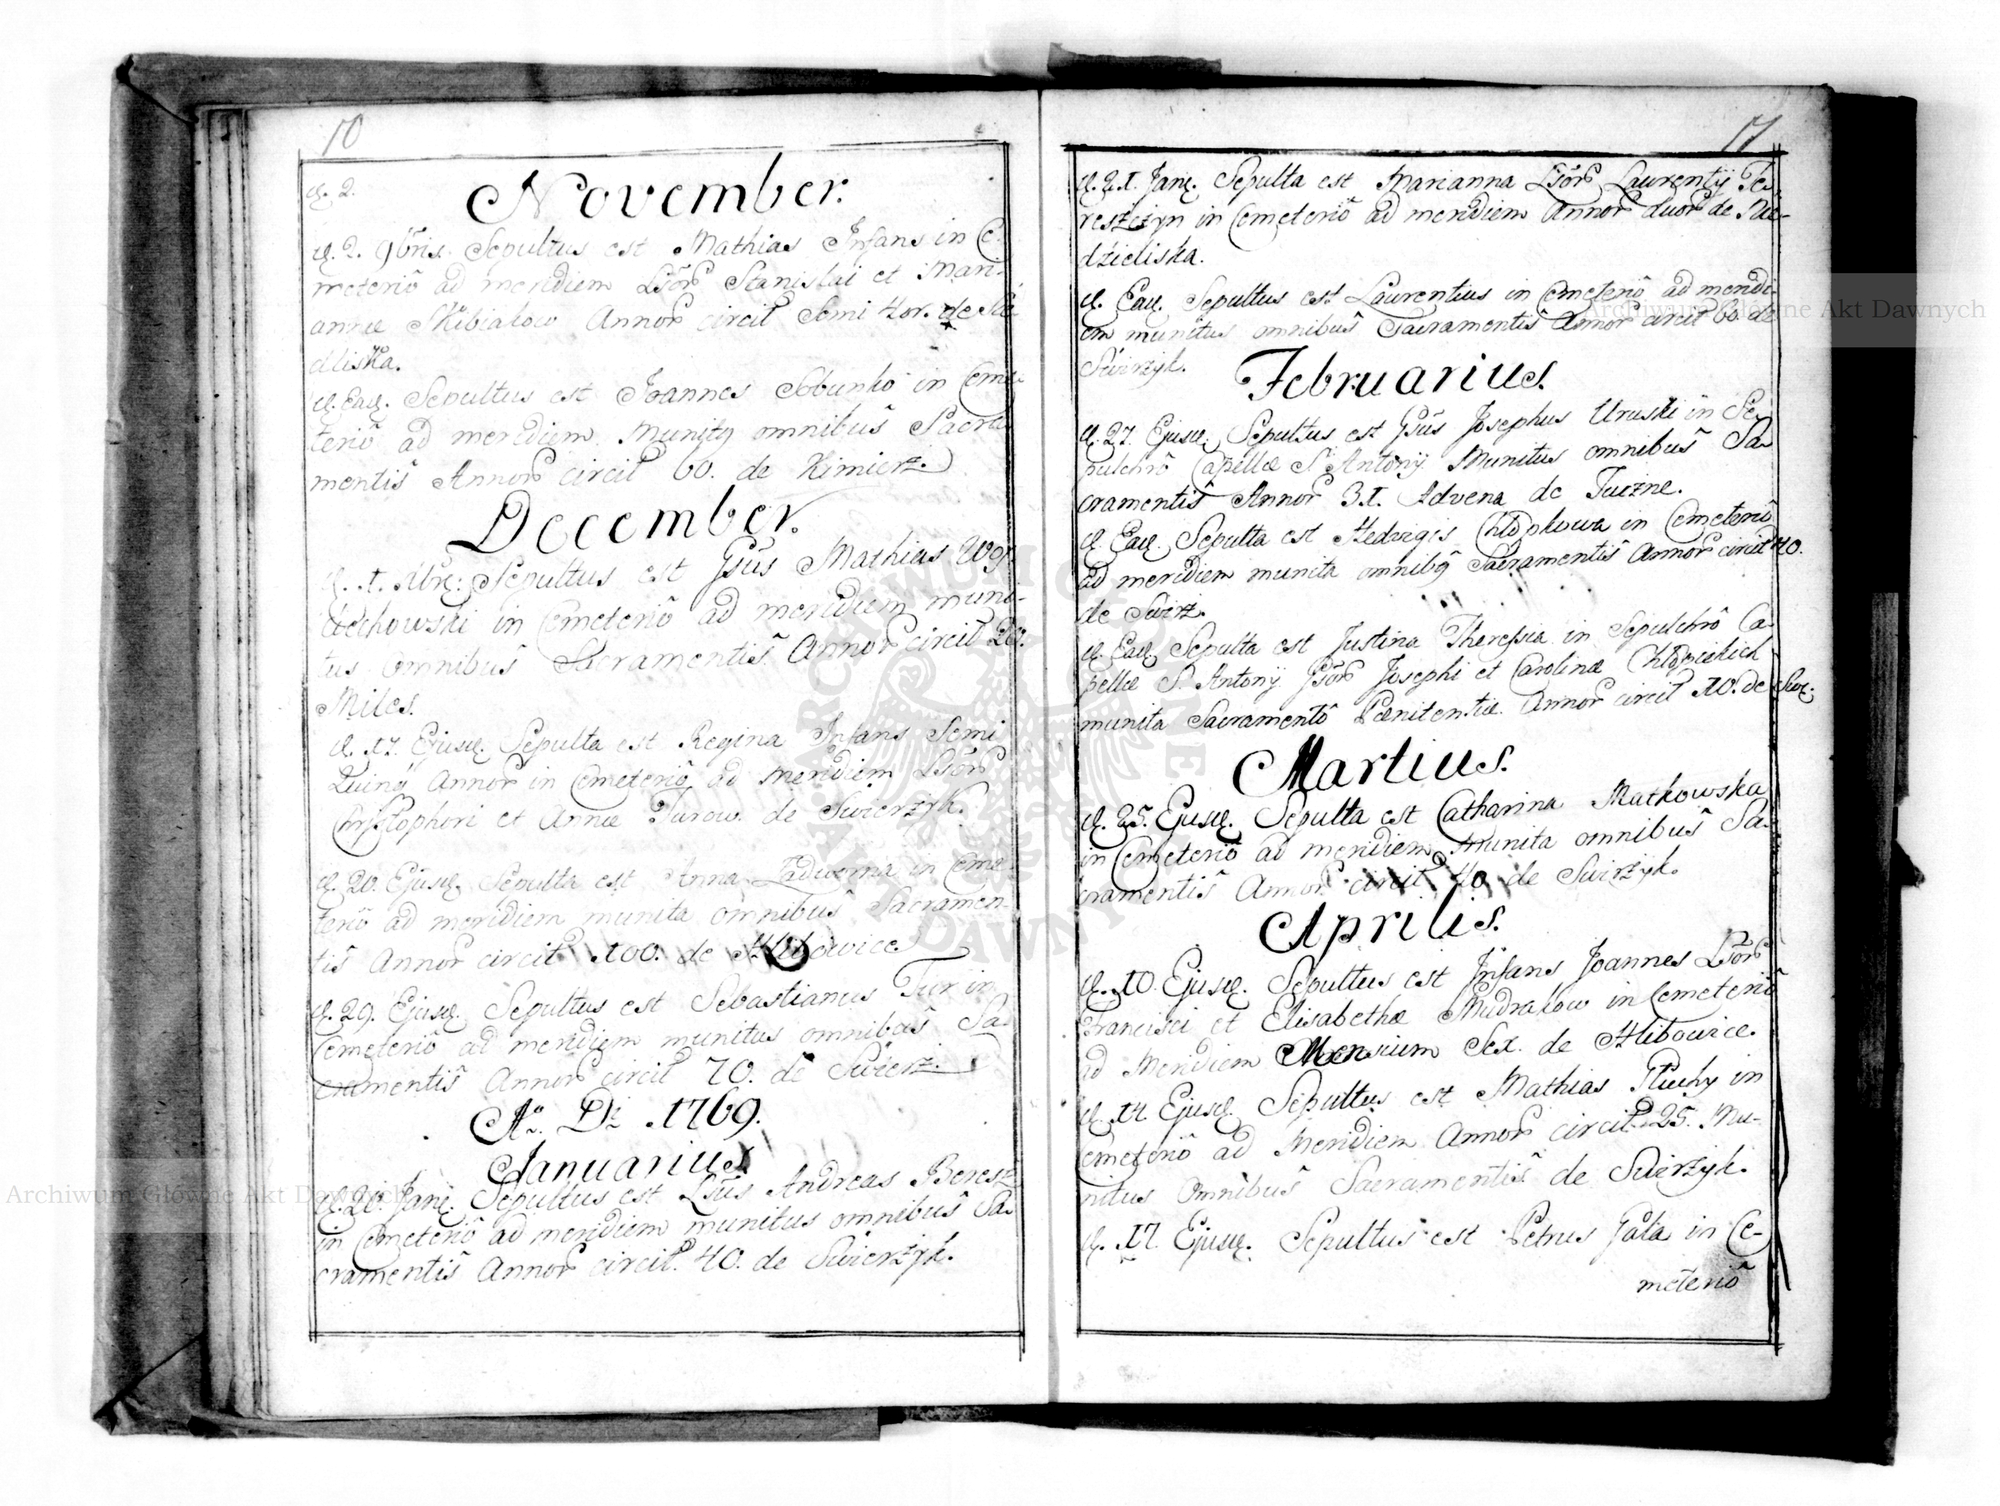 10
d. 2.
November.
d. 2. 9bris. Sepultus est Mathias Infans in Ce-
meteriô ad meridiem Lsor Stanislai et Mari-
annæ Skibiakow Annor circit Semi 4or. de
dliska.
d. Ead. Sepultus est Joannes Sobunko in Ceme-
teriô ad meridiem Munitg omnibus Sacra
mentis Annor circit 60. de Kimierz.
December.
d. 1. Xbr: Sepultus est Gsus Mathias Woj-
ciechowski in Cemeteriô ad meridiem muni-
tus omnibus Sacramentis Annor circit 20.
Miles.
d. 17. Ejusd. Sepulta est Regina Infans Semi
Annor in Cemeteriô ad meridiem Lsor
Chrystophori et Annæ Turow. de Swierzyk.
d. 20. Ejusd. Sepulta est Anna Ladwomna in Ceme-
teriô ad meridiem munita omnibus Sacramen-
tis Annor circit 100. de Hlibowice
d. 29. Ejusd. Sepultus est Sebastianus Tur in
Cemeteriô ad meridiem munitus omnibus Sa-
cramentis Annor circit 70. de Swierz.
Ao. Di. 1769.
Januarius
d. 20. Jan. Sepultus est Lsus Andreas Beresz
in Cemeteriô ad meridiem munitus omnibus Sa-
cramentis Annor circit. 40. de Swierzyk.
17
d. 21. Jan. Sepulta est Marianna Lsor Laurentij Te-
reszczyn in Cemeteriô ad meridiem Annor duor de Nie-
dzieliska.
d. Ead. Sepultus est Laurentius in Cemeteriô ad meridi-
em munitus omnibus Sacramentis Annor circit 60. de
Swirzyk.
Februarius.
d. 27. Ejusd. Sepultus est Gsus Josephus Uruski in Se-
pulchrô Capellæ S. Antonij Munitus omnibus Sa-
cramentis Annor 31. Advena de Tuczne.
d. Ead. Sepulta est Hedvigis Chlopkowa in Cemeteriô
ad meridiem munita omnibg Sacramentis Annor circit 40.
de Swirz.
d. Ead. Sepulta est Justina Theressia in Sepulchrô Ca-
pellæ S. Antonij Gsor Josephi et Carolinæ
munita Sacramentô Pænitentiæ Annor circit 10. de
Martius.
d. 25. Ejusd. Sepulta est Catharina Matkowska
in Cemeteriô ad meridiem Munita omnibus Sa-
cramentis Annor circit 40 de Swirzyk.
Aprilis.
d. 10. Ejusd. Sepultus est Infans Joannes Lsor
Francisci et Elisabethæ Mudrakow in Cemeteriô
ad Meridiem Mensium Sex. de Hlibowice.
d. 14. Ejusd. Sepultus est Mathias Pluchy in
Cemeteriô ad Meridiem Annor circit 25. Mu-
nitus Omnibus Sacramentis de Swirzyk.
d. 17. Ejusd. Sepultus est Petrus Gała in Ce-
meteriô
Archiwum Główne Akt Dawnych
Archiwum Główne Akt Dawnych
ARCHIWUM GŁÓWNE AKT DAWNYCH